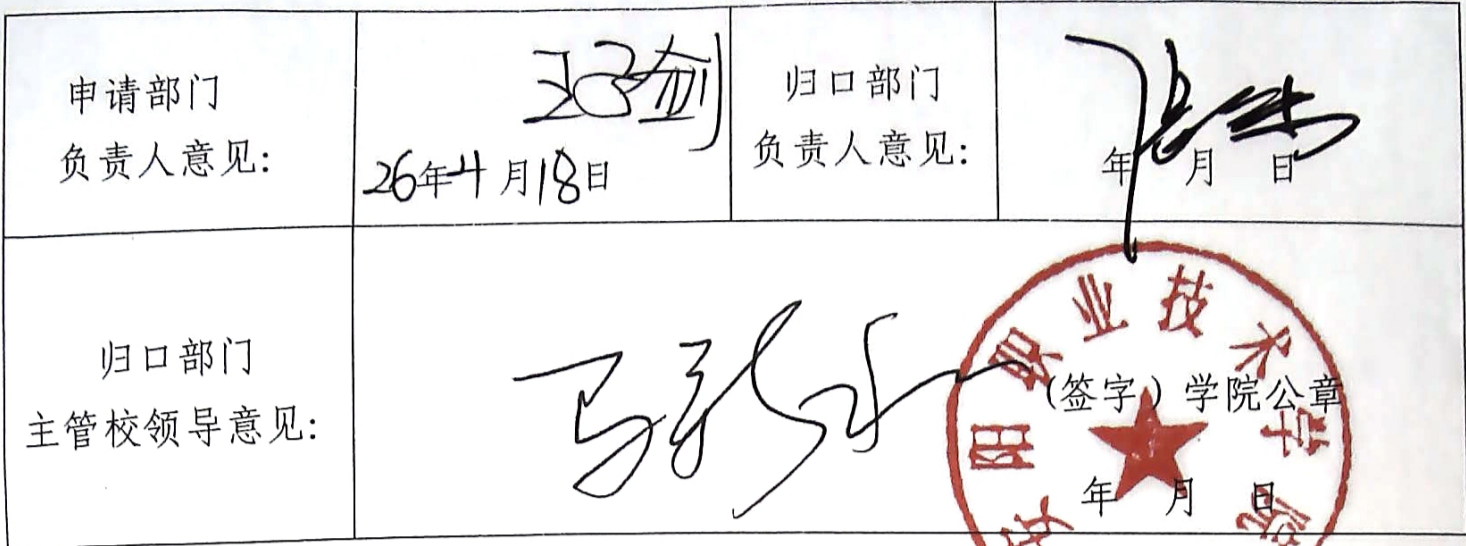 申请部门
负责人意见:
26年4月18日
归口部门
负责人意见:
年 月 日
归口部门
主管校领导意见:
(签字)学院公章
年 月 日
安阳职业技术学院